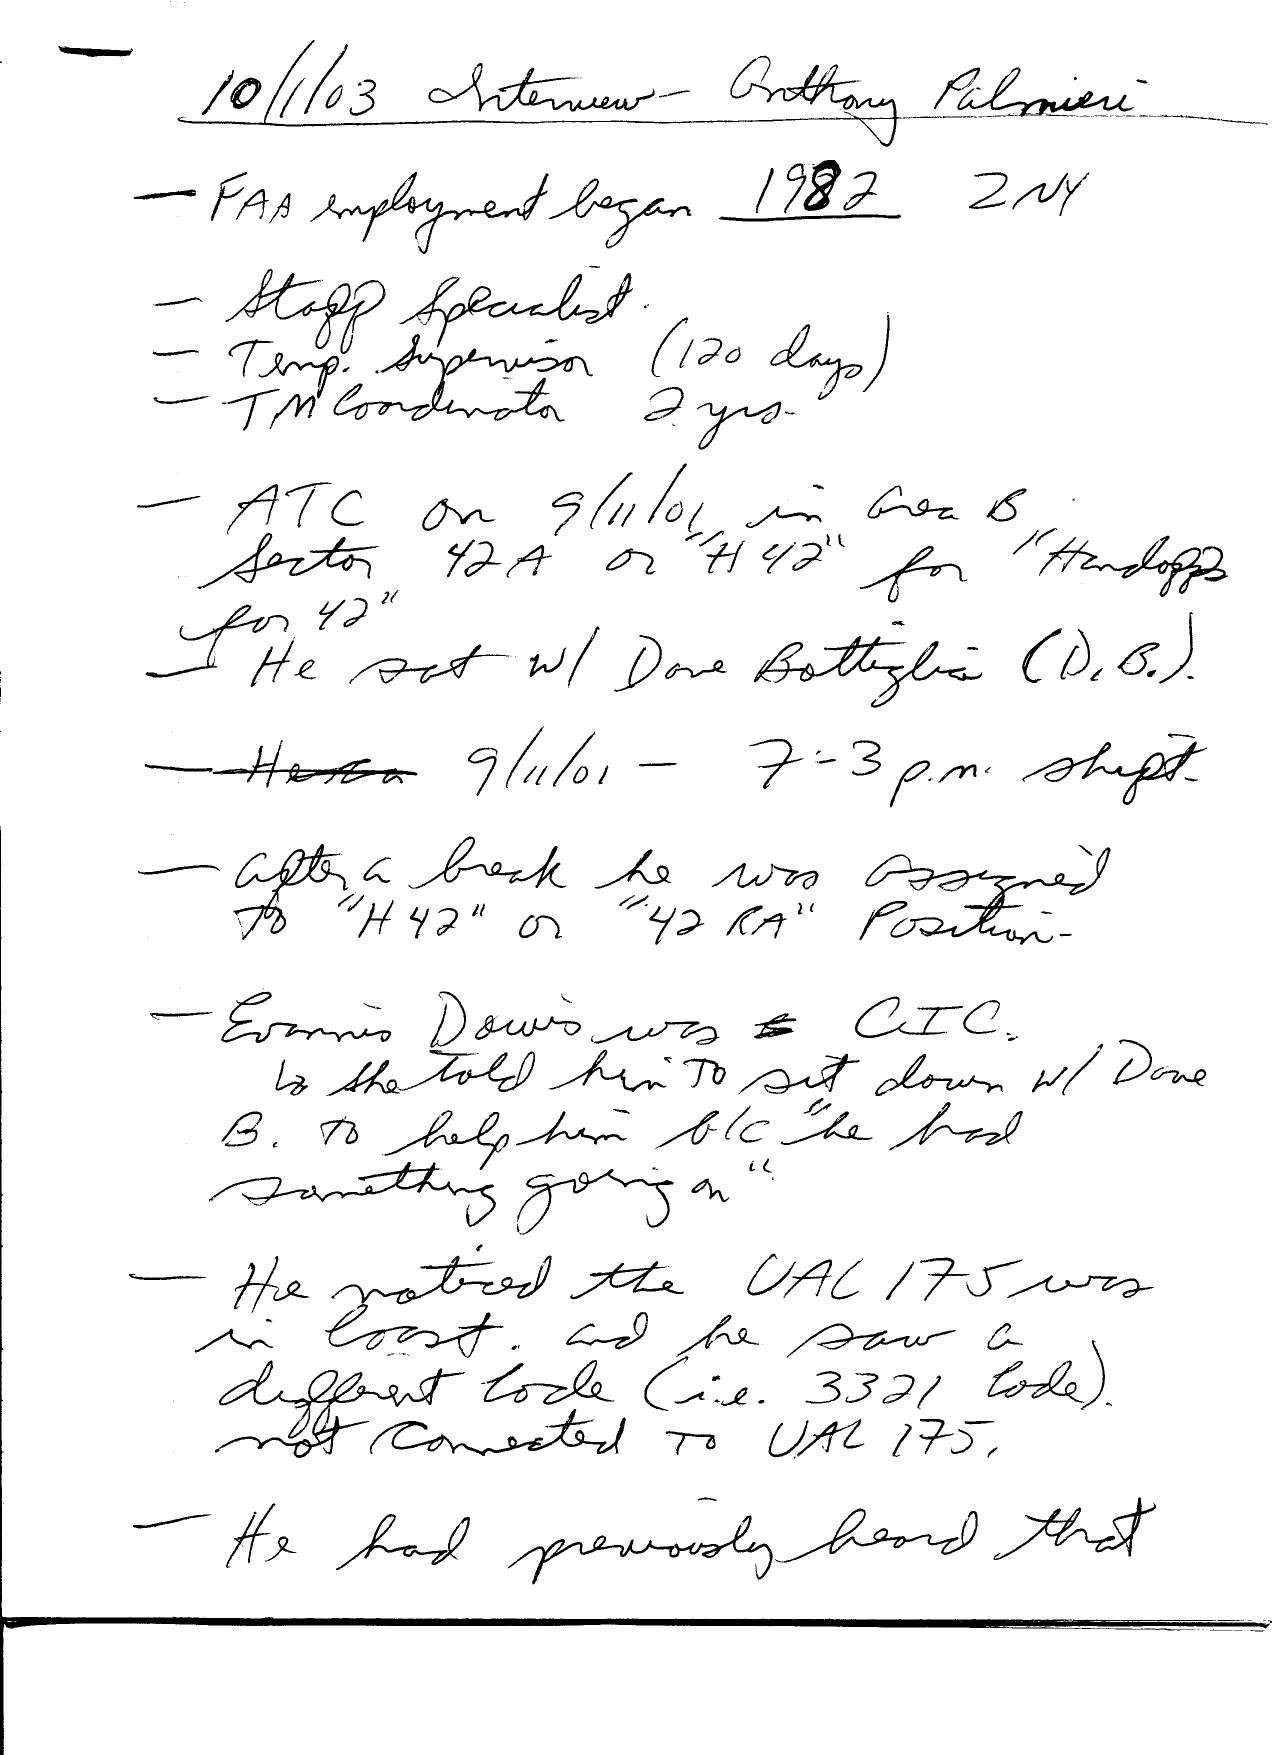 10/1/03 Interview - Anthony Palmieri
- FAA employment began 1982 ZNY
- Staff Specialist.
- Temp. Supervisor (120 days)
- TM Coordinator 2 yrs.
- ATC on 9/11/01, in Area B
Sector 42A or "H42" for "Handoffs
for 42"
- He sat w/ Dave Bottiglia (D.B.).
- 9/11/01 - 7-3 p.m. shift-
- After a break he was assigned
to "H42" or "42 RA" Position-
- Evannis Dowis was CIC.
↳ She told him to sit down w/ Dave
B. to help him b/c "he had
something going on"
- He noticed the UAL 175 was
in Coast. and he saw a
different Code (i.e. 3321 Code).
not Connected to UAL 175.
- He had previously heard that